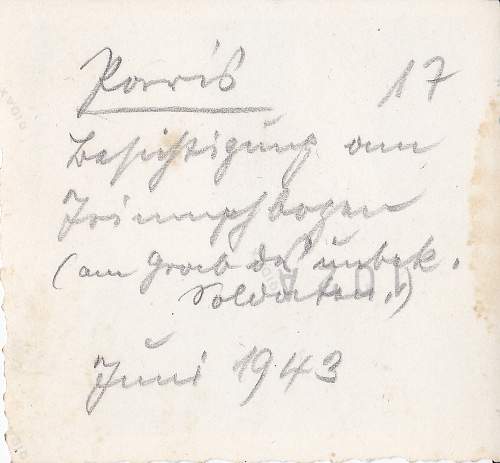 Paris 17
Besichtigung am
Triumphbogen
(am Grab des unbek.
Soldaten.)
Juni 1943